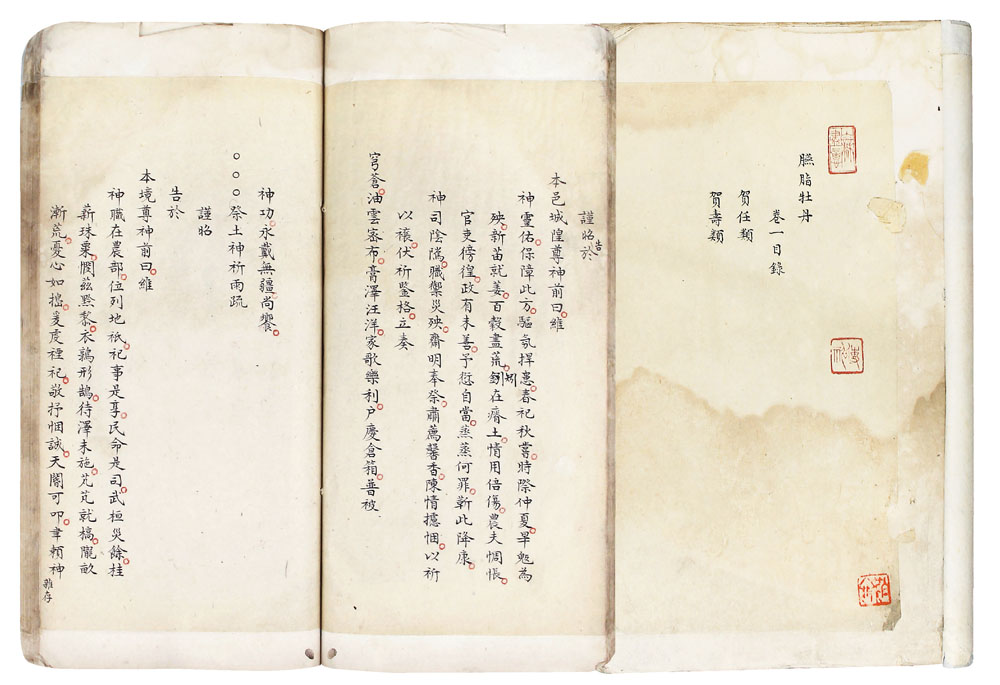 臙脂牡丹
卷一目錄
贺任類
贺壽類
謹昭告於
本邑城隍尊神前曰維
神靈佑保障此方驅氛捍患春祀秋嘗時際仲夏旱魃為
殃新苗就萎百穀盡荒矧在瘠土情用倍傷農夫惆悵
官吏傍徨政有未善予愆自當烝烝何罪靳此降康
神司陰隲職禦災殃齋明奉祭肅薦馨香陳情攄悃以祈
以禳伏祈鑒格立奏
穹蒼油雲密布膏澤汪洋家歌樂利户慶倉箱普被
神功永戴無疆尚饗
○○○祭土神祈雨疏
謹昭
告於
本境尊神前曰維
神職在農部位列地祇祀事是享民命是司武桓災餘桂
薪珠粟憫兹黔黎衣鶉形鵠待澤未施芃芃就槁隴畝
漸荒憂心如擣爰虔禋祀敬抒悃誠天閽可叩聿賴神
雜存